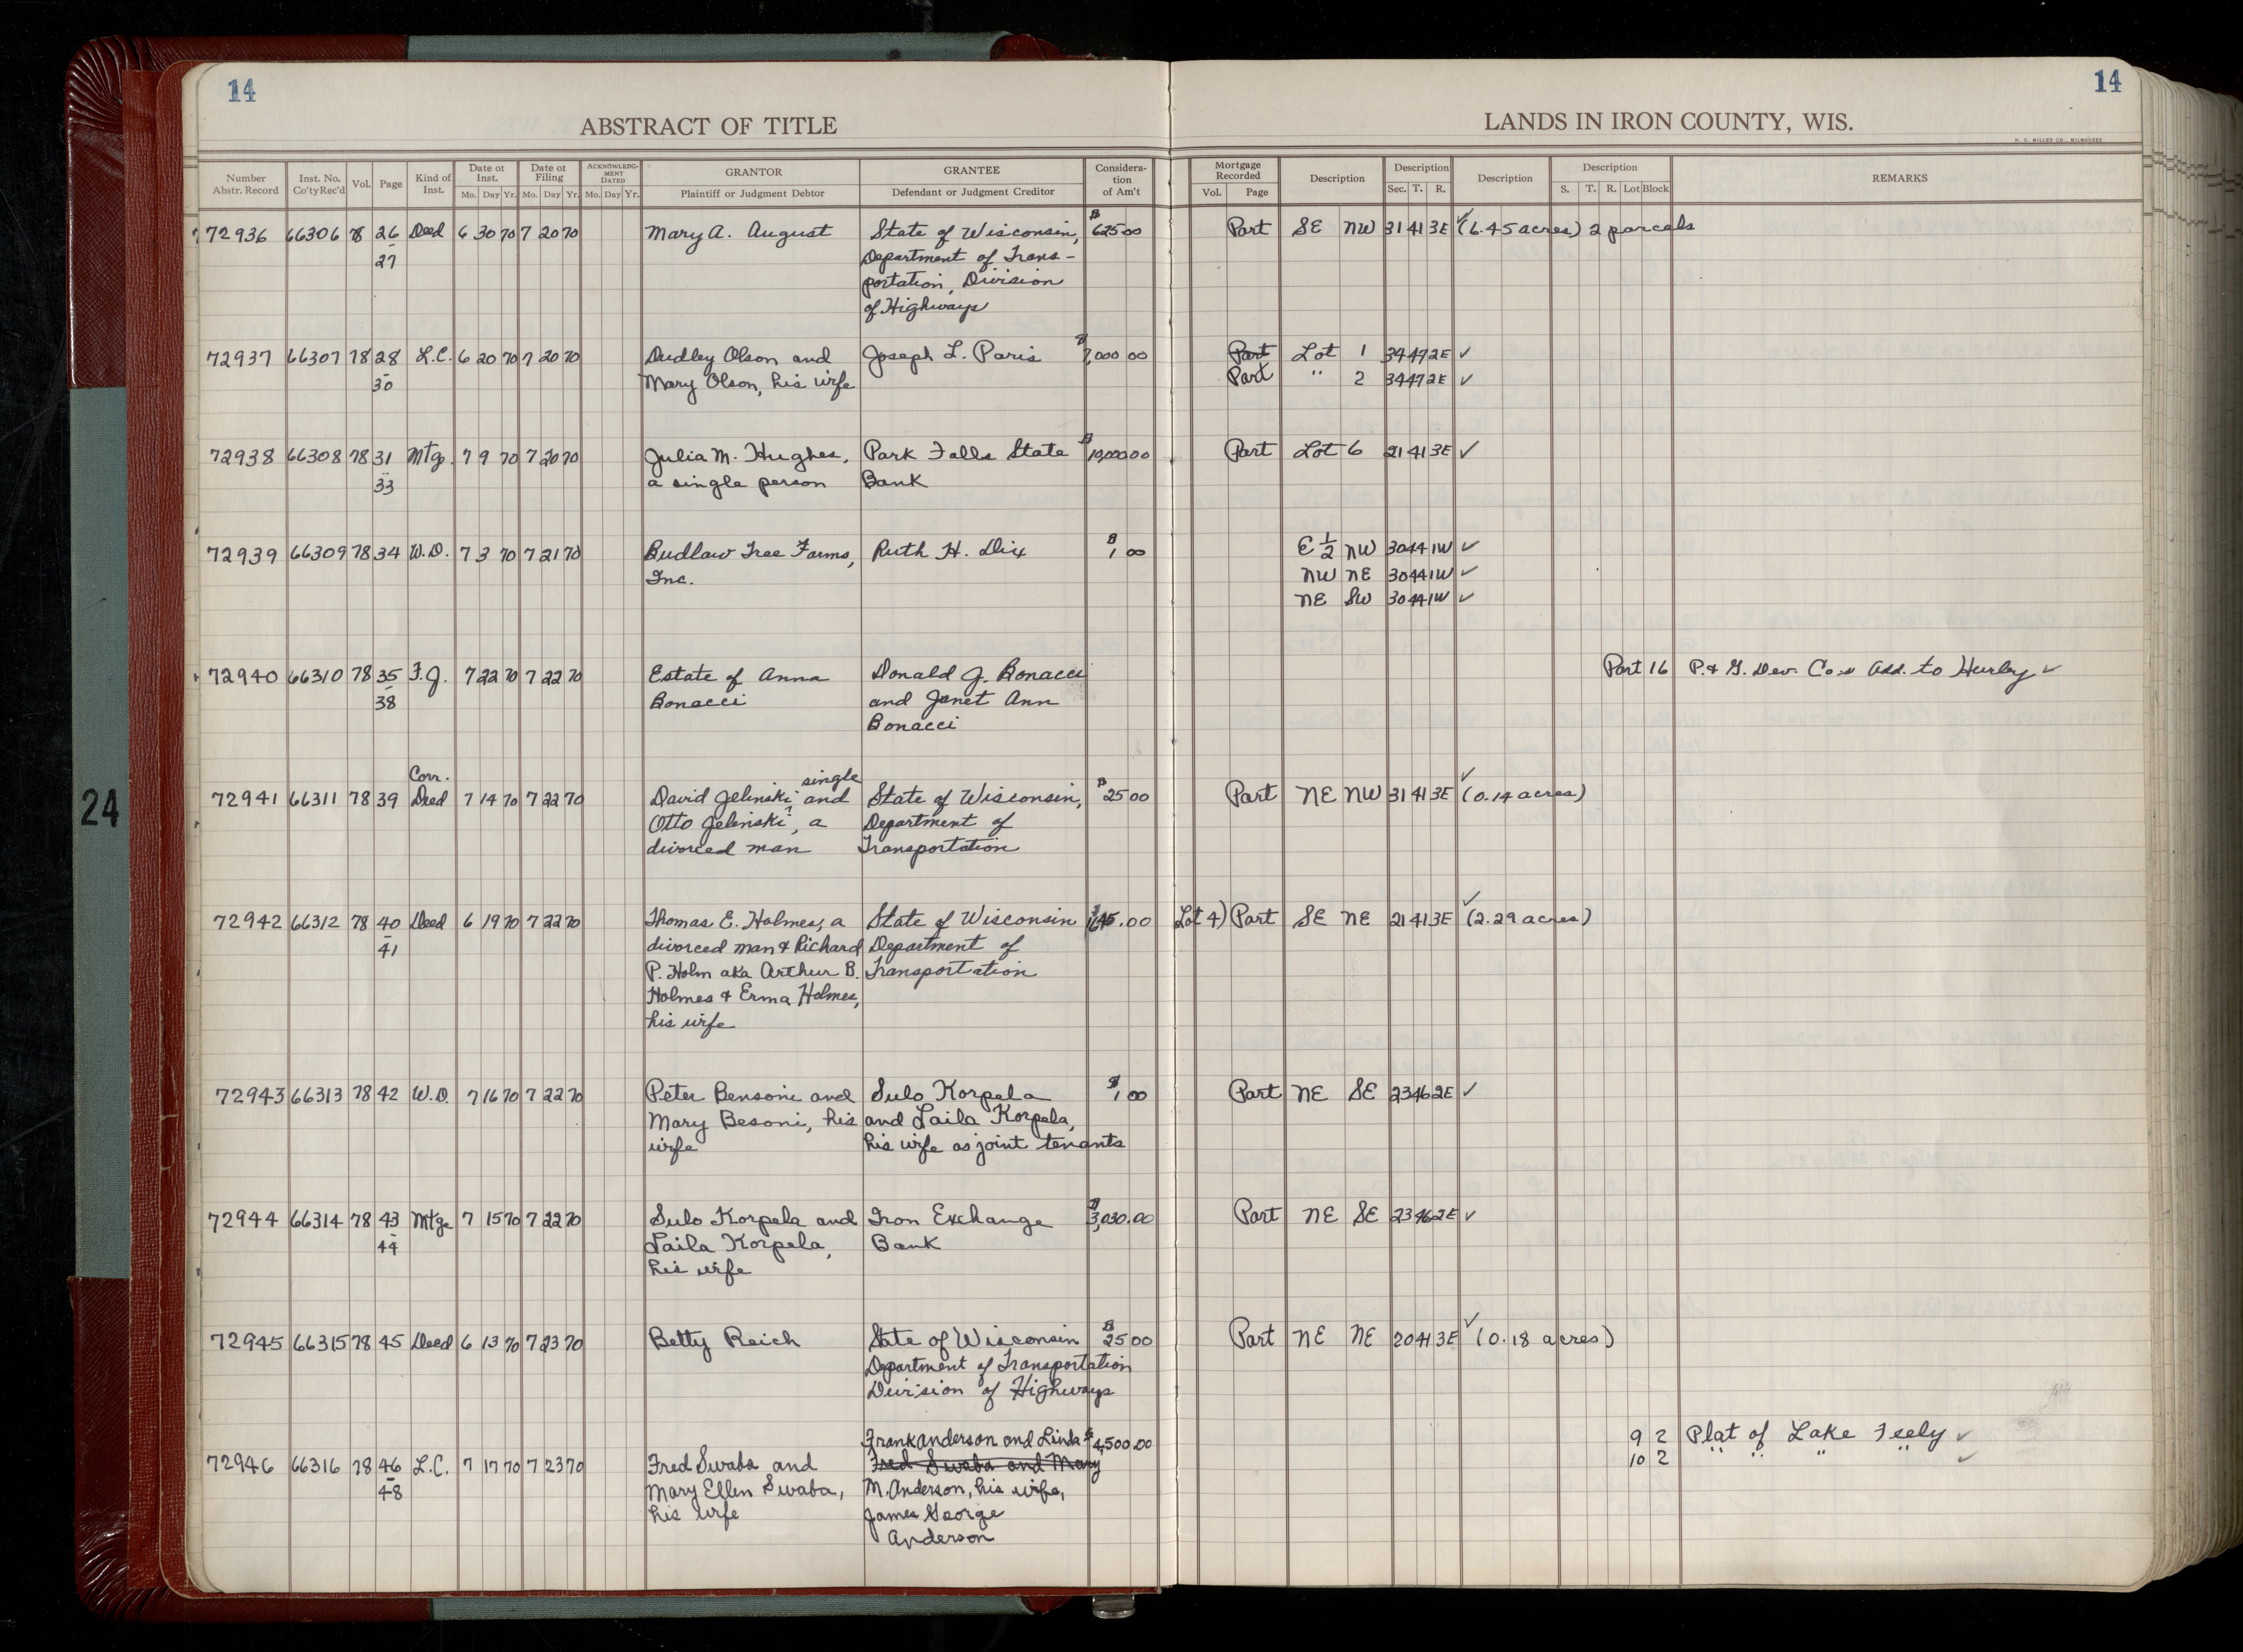 14
14
ABSTRACT OF TITLE
LANDS IN IRON COUNTY, WIS.
H. C. MILLER CO., MILWAUKEE
Number Abstr. Record
Inst. No. Co'ty Rec'd
Vol.
Page
Kind of Inst.
Date of Inst. Mo. Day Yr.
Date of Filing Mo. Day Yr.
ACKNOWLEDGMENT DATED Mo. Day Yr.
GRANTOR Plaintiff or Judgment Debtor
GRANTEE Defendant or Judgment Creditor
Consideration of Am't
Mortgage Recorded Vol. Page
Description
Description Sec. T. R.
Description
Description S. T. R. Lot Block
REMARKS
72936 66306 78 26 Deed 6 30 70 7 20 70 Mary A. August State of Wisconsin, $ 625 00 Part SE NW 31 41 3E ✓ (6.45 acres) 2 parcels
27 Department of Trans-
portation, Division
of Highways
72937 66307 78 28 L.C. 6 20 70 7 20 70 Dudley Olson and Joseph L. Paris ,000 00 Part Lot 1 34 47 2E ✓
30 Mary Olson, his wife Part " 2 34 47 2E ✓
72938 66308 78 31 Mtg. 7 9 70 7 20 70 Julia M. Hughes, Park Falls State $ 10,000.00 Part Lot 6 21 41 3E ✓
33 a single person Bank
72939 66309 78 34 W.D. 7 3 70 7 21 70 Budlaw Tree Farms, Ruth H. Dix $ 1 00 E 1/2 NW 30 44 1W ✓
Inc. NW NE 30 44 1W ✓
NE SW 30 44 1W ✓
72940 66310 78 35 F.J. 7 22 70 7 22 70 Estate of Anna Donald J. Bonacci Part 16 P. & G. Dev. Co.s Add. to Hurley ✓
38 Bonacci and Janet Ann
Bonacci
Corr. single
72941 66311 78 39 Deed 7 14 70 7 22 70 David Jelinski, and State of Wisconsin, $ 25 00 Part NE NW 31 41 3E ✓ (0.14 acres)
Otto Jelinski, a Department of
divorced man Transportation
72942 66312 78 40 Deed 6 19 70 7 22 70 Thomas E. Holmes, a State of Wisconsin .00 Lot 4) Part SE NE 21 41 3E ✓ (2.29 acres)
41 divorced man & Richard Department of
P. Holm aka Arthur B. Transportation
Holmes & Erma Holmes,
his wife
72943 66313 78 42 W.D. 7 16 70 7 22 70 Peter Bensoni and Sulo Korpela $ 1 00 Part NE SE 23 46 2E ✓
Mary Besoni, his and Laila Korpela,
wife his wife as joint tenants
72944 66314 78 43 Mtge 7 15 70 7 22 70 Sulo Korpela and Iron Exchange $ 3,030.00 Part NE SE 23 46 2E ✓
44 Laila Korpela, Bank
his wife
72945 66315 78 45 Deed 6 13 70 7 23 70 Betty Reich State of Wisconsin $ 25 00 Part NE NE 20 41 3E ✓ (0.18 acres)
Department of Transportation
Division of Highways
Frank Anderson and Linda $ 4,500.00 9 2 Plat of Lake Feely ✓
72946 66316 78 46 L.C. 7 17 70 7 23 70 Fred Swaba and Fred Swaba and Mary 10 2 " " " " ✓
48 Mary Ellen Swaba, M. Anderson, his wife,
his wife James George
Anderson
24